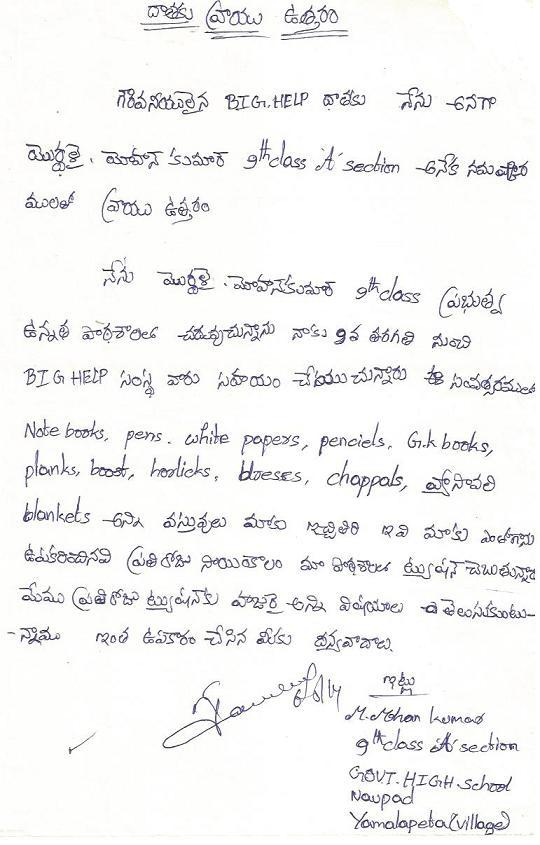 దాతకు వ్రాయు ఉత్తరం
గౌరవనీయులైన BIG.HELP దాతకు నేను అనగా
మొర్థళై. మోహన్ కుమార్ 9th class 'A' section అనేక నమష్కార
ములతో వ్రాయు ఉత్తరం
నేను మొర్థళై. మోహన్ కుమార్ 9th class ప్రభుత్వ
ఉన్నత పాఠశాలలో చదువుచున్నాను నాకు 9వ తరగతి నుంచి
BIG HELP సంస్థ వారు సహయం చేయుచున్నారు ఈ సంవత్సరములో
Note books, pens. white papers, penciels, G.k books,
planks, boost, horlicks, dresses, chappals, వ్యాసావళి
blankets అన్ని వస్తువులు మాకు ఇచ్చితిరి ఇవి మాకు ఎంతోగాను
ఉపకరించినవి ప్రతిరోజు సాయంకాలం మా పాఠశాలలో ట్యుషన్ చెబుతున్నారు
మేము ప్రతిరోజు ట్యుషన్‌కు హాజరై అన్ని విషయాలు తెలుసుకుంటు-
-న్నాము ఇంత ఉపకారం చేసిన మీకు ధన్యవాదాలు.
ఇట్లు
M.Mohan kumar
9th class 'A' section
GOVT.HIGH.School
Naupad
Yamalapeta(village)